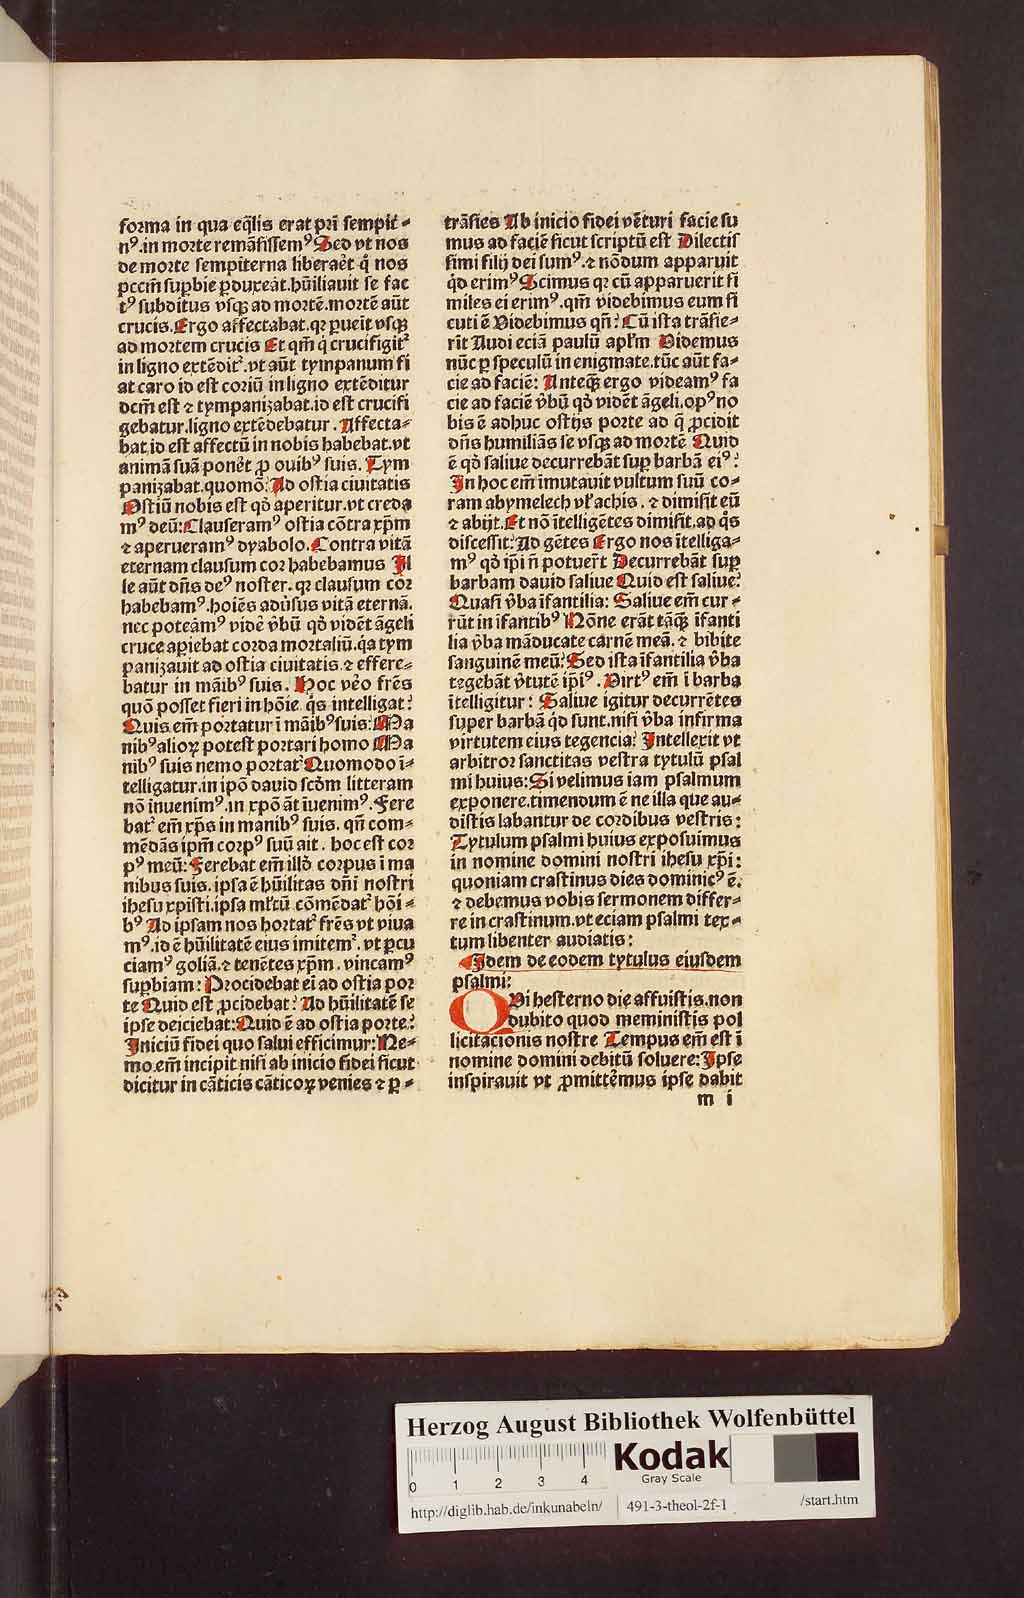 forma in qua eq̃lis erat pr̃i sempit̾⸗
nꝰ.in morte remãsissemꝰ Sed vt nos
de morte sempiterna liberaẽt q̃ nos
pccm̃ suꝑbie ꝑduxeãt.hũiliauit se fac
tꝰ subditus vsqꝫ ad mortẽ.mortẽ aũt
crucis.Ergo affectabat.qꝛ ꝑueit vsqꝫ
ad mortem crucis Et qm̃ q̃ crucifigit᷑
in ligno extẽdit᷑.vt aũt tympanum fi
at caro id est coriũ in ligno extẽditur
dcm̃ est ⁊ tympanizabat.id est crucifi
gebatur.ligno extẽdebatur. Affecta⸗
bat.id est affectũ in nobis habebat.vt
animã suã ponẽt ꝓ ouibꝰ suis. Tym
panizabat.quomõ: Ad ostia ciuitatis
Ostiũ nobis est qd̾ aperitur.vt creda
mꝰ deũ: Clauseramꝰ ostia cõtra xp̃m
⁊ aperueramꝰ dyabolo. Contra vitã
eternam clausum cor habebamus Il
le aũt dñs deꝰ noster.qꝛ clausum cor
habebamꝰ.hoĩes adũsus vitã eternã.
nec poteãmꝰ vidẽ v̾bũ qd̾ vidẽt ãgeli
cruce aꝑiebat corda mortaliũ.q̃a tym
panizauit ad ostia ciuitatis.⁊ effere⸗
batur in mãibꝰ suis. Hoc v̾o frẽs
quõ posset fieri in hõie q̃s intelligat:
Quis em̃ portatur ĩ mãibꝰ suis: Ma
nibꝰ alioꝝ potest portari homo Ma
nibꝰ suis nemo portat᷑ Quomodo ĩ⸗
telligatur.in ip̃o dauid scd̾m litteram
nõ inuenimꝰ.in xp̃o ãt ĩuenimꝰ.Fere
bat᷑ em̃ xp̃s in manibꝰ suis. qñ com⸗
mẽdãs ip̃m corpꝰ suũ ait. hoc est cor
pꝰ meũ: Ferebat em̃ illd̾ corpus ĩ ma
nibus suis. ipsa ẽ hũilitas dñi nostri
ihesu xp̃isti.ipsa ml̾tũ cõmẽdat᷑ hõi⸗
bꝰ Ad ipsam nos hortat᷑ frẽs vt viua
mꝰ.id ẽ hũilitatẽ eius imitem᷑. vt ꝑcu
ciamꝰ goliã.⁊ tenẽtes xp̃m.vincamꝰ
suꝑbiam: Procidebat ei ad ostia por
te Quid est ꝓcidebat: Ad hũilitatẽ se
ipse deiciebat: Quid ẽ ad ostia porte:
Iniciũ fidei quo salui efficimur: Ne⸗
mo em̃ incipit nisi ab inicio fidei sicut
dicitur in cãticis cãticoꝝ venies ⁊ ꝑ⸗
trãsies Ab inicio fidei vẽturi facie su
mus ad faciẽ sicut scriptũ est Dilectis
simi filij dei sumꝰ.⁊ nõdum apparuit
qd̾ erimꝰ Scimus qꝛ cũ apparuerit si
miles ei erimꝰ.qm̃ videbimus eum si
cuti ẽ Videbimus qñ: Cũ ista trãsie⸗
rĩt Audi eciã paulũ ap̾lm Videmus
nũc ꝑ speculũ in enigmate.tũc aũt fa⸗
cie ad faciẽ: Anteqꝫ̃ ergo videamꝰ fa
cie ad faciẽ v̾bũ qd̾ vidẽt ãgeli.opꝰ no
bis ẽ adhuc ostijs porte ad q̃ ꝓcidit
dñs humiliãs se vsqꝫ ad mortẽ Quid
ẽ qd̾ saliue decurrebãt suꝑ barbã eiꝰ:
In hoc em̃ imutauit vultum suũ co⸗
ram abymelech vl̾ achis. ⁊ dimisit eũ
⁊ abijt. Et nõ ĩtelligẽtes dimisit.ad q̃s
discessit: Ad gẽtes Ergo nos ĩtelliga⸗
mꝰ qd̾ ip̃i ñ potuer̃t Decurrebãt suꝑ
barbam dauid saliue Quid est saliue:
Quasi v̾ba ĩfantilia: Saliue em̃ cur⸗
rũt in ĩfantibꝰ Nõne erãt tãqꝫ̃ ĩfanti
lia v̾ba mãducate carnẽ meã.⁊ bibite
sanguinẽ meũ: Sed ista ĩfantilia v̾ba
tegebãt v̾tutẽ ip̃iꝰ. Virtꝰ em̃ ĩ barba
ĩtelligitur: Saliue igitur decurrẽtes
super barbã qd̾ sunt.nisi v̾ba infirma
virtutem eius tegencia: Intellexit vt
arbitror sanctitas vestra tytulũ psal
mi huius: Si velimus iam psalmum
exponere.timendum ẽ ne illa que au⸗
distis labantur de cordibus vestris:
Tytulum psalmi huius exposuimus
in nomine domini nostri ihesu xp̃i:
quoniam crastinus dies dominicꝰ ẽ.
⁊ debemus vobis sermonem differ⸗
re in crastinum.vt eciam psalmi tex⸗
tum libenter audiatis:
Idem de eodem tytulus eiusdem
psalmi:
QVi hesterno die affuistis.non
dubito quod meministis pol
licitacionis nostre Tempus em̃ est ĩ
nomine domini debitũ soluere: Ipse
inspirauit vt ꝓmittẽmus ipse dabit
m i
Herzog August Bibliothek Wolfenbüttel
0 1 2 3 4
Kodak
Gray Scale
http://diglib.hab.de/inkunabeln/
491-3-theol-2f-1
/start.htm